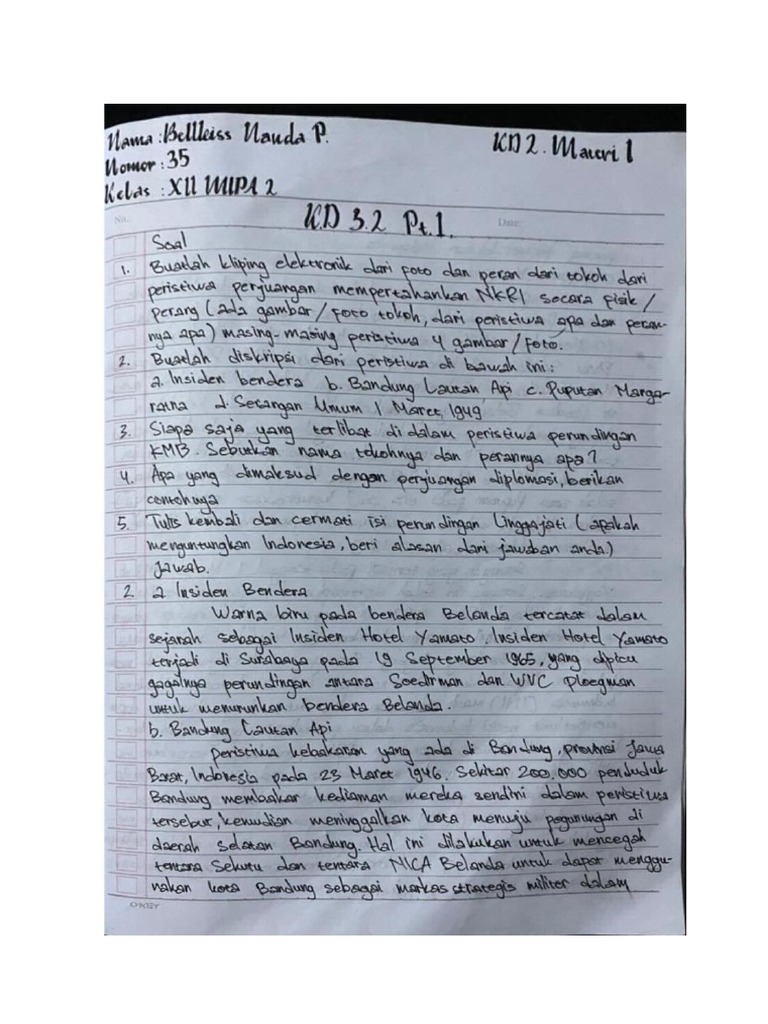 Nama : Bellleiss Nanda P.
KD 2. Materi 1
Nomor : 35
Kelas : XII MIPA 2
No.
KD 3.2 Pt.1.
Date:
Soal
1. Buatlah kliping elektronik dari foto dan peran dari tokoh dari
peristiwa perjuangan mempertahankan NKRI secara fisik /
perang (ada gambar / foto tokoh, dari peristiwa apa dan peran-
nya apa) masing-masing peristiwa 4 gambar / foto.
2. Buatlah diskripsi dari peristiwa di bawah ini :
a. Insiden bendera b. Bandung Lautan Api c. Puputan Marga-
rana d. Serangan Umum 1 Maret 1949
3. Siapa saja yang terlibat di dalam peristiwa perundingan
KMB. Sebutkan nama tokohnya dan perannya apa?
4. Apa yang dimaksud dengan perjuangan diplomasi, berikan
contohnya
5. Tulis kembali dan cermati isi perundingan Linggajati (apakah
menguntungkan Indonesia, beri alasan dari jawaban anda.)
Jawab.
2 a. Insiden Bendera
Warna biru pada bendera Belanda tercatat dalam
sejarah sebagai Insiden Hotel Yamato. Insiden Hotel Yamato
terjadi di Surabaya pada 19 September 1965, yang dipicu
gagalnya perundingan antara Soedirman dan WVC Ploegman
untuk menurunkan bendera Belanda.
b. Bandung Lautan Api
peristiwa kebakaran yang ada di Bandung, provinsi Jawa
Barat, Indonesia pada 23 Maret 1946. Sekitar 200.000 penduduk
Bandung membakar kediaman mereka sendini dalam peristiwa
tersebur, kemudian meninggalkan kota menuju pegunungan di
daerah selatan Bandung. Hal ini dilakukan untuk mencegah
tentara Sekutu dan tentara NICA Belanda untuk dapat menggu-
nakan kota Bandung sebagai markas strategis militer dalam